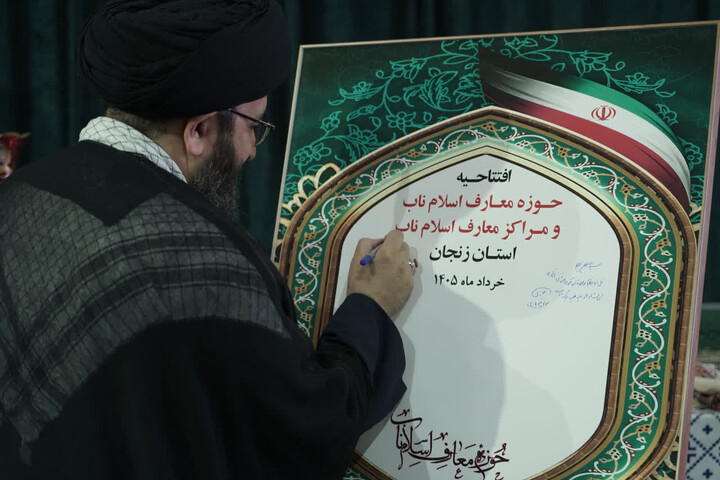 افتتاحیه
حوزه معارف اسلام ناب
و مراکز معارف اسلام ناب
استان زنجان
خرداد ماه ۱۴۰۵
حوزه معارف اسلام ناب